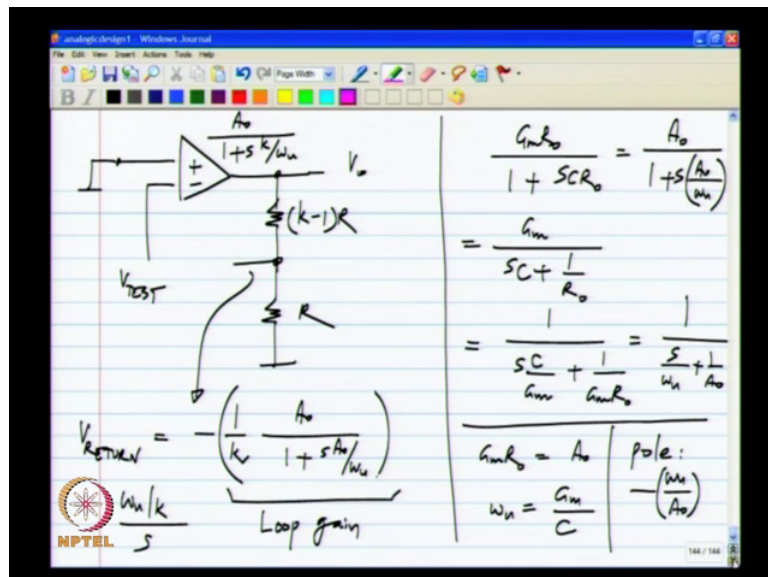 analogicdesign1 - Windows Journal
File Edit View Insert Actions Tools Help
Page Width
B I
A₀
1 + s k/ωᵤ
+
-
V₀
(k-1)R
V_TEST
R
V_RETURN = -(1/k A₀/(1 + s A₀/ωᵤ))
Loop gain
ωᵤ/k
s
NPTEL
GₘR₀/(1 + SCR₀) = A₀/(1 + s(A₀/ωᵤ))
= Gₘ/(sC + 1/R₀)
= 1/(s C/Gₘ + 1/(GₘR₀)) = 1/(s/ωᵤ + 1/A₀)
GₘR₀ = A₀
ωᵤ = Gₘ/C
pole:
-(ωᵤ/A₀)
144 / 144